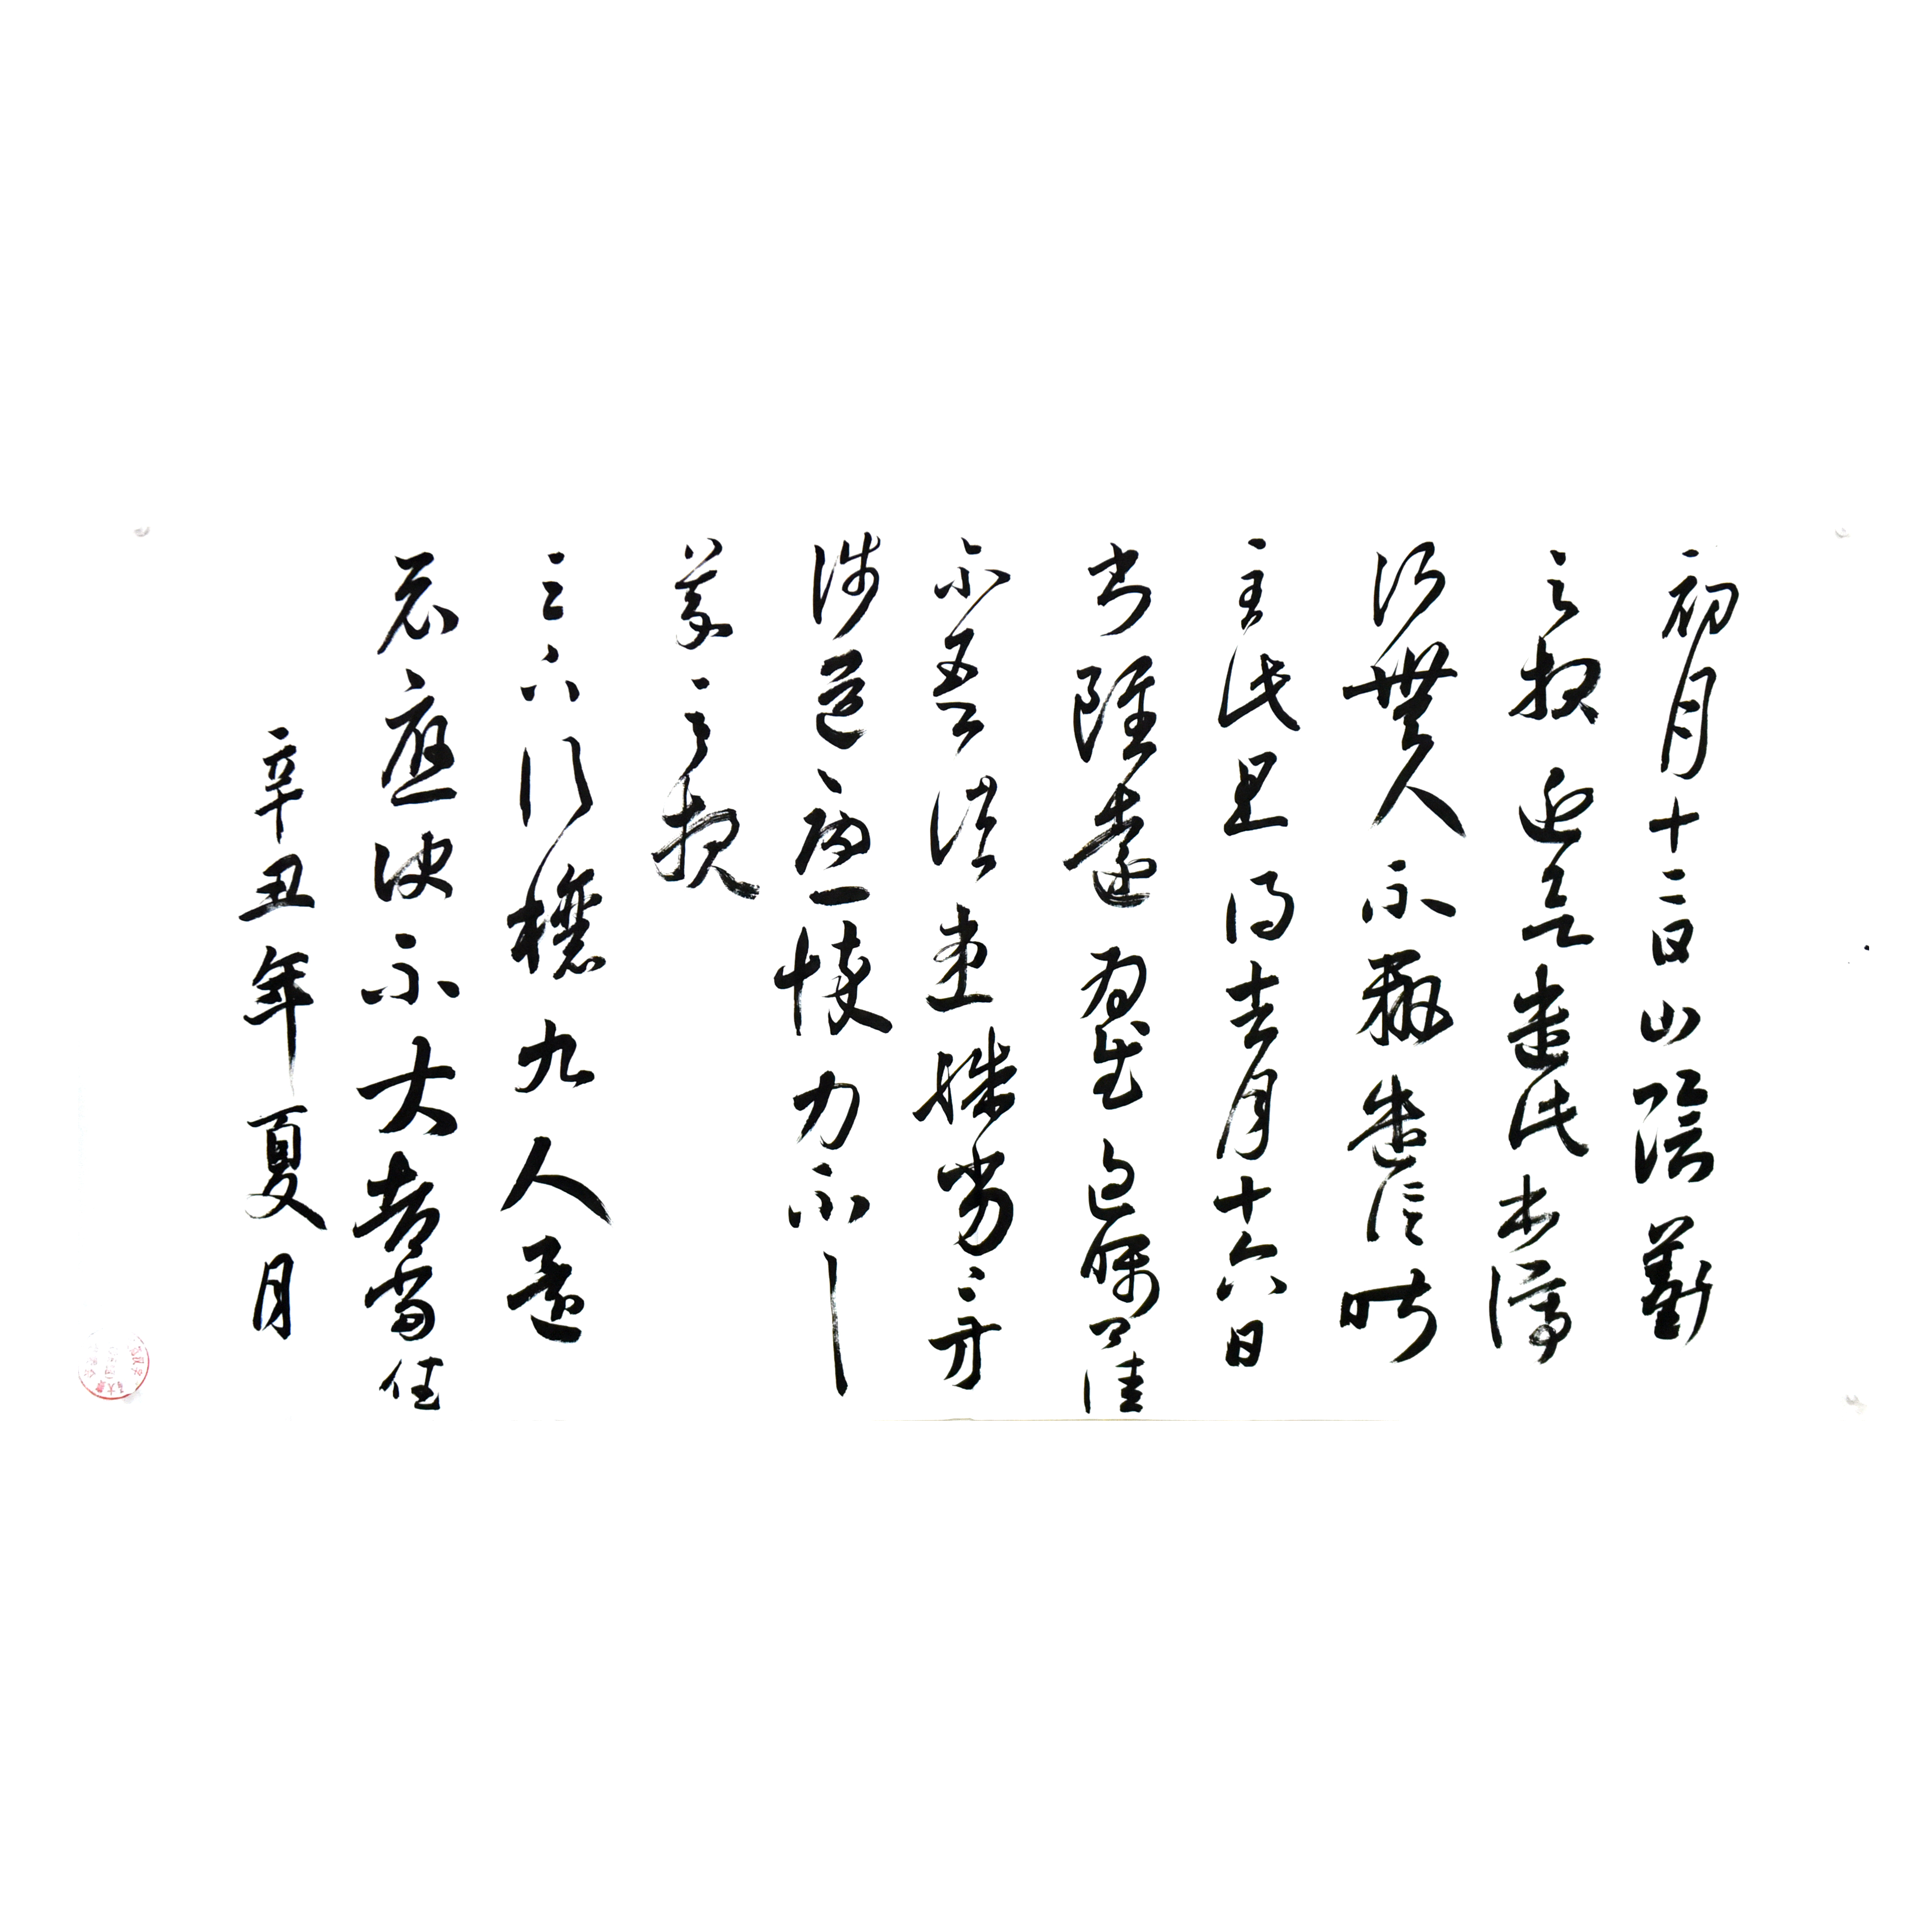 初月十二日山陰羲
之報近欲遣此書停
行無人不辦遣信昨
至此且得去月十六日
書雖遠為慰過囑卿佳
不吾諸患殊劣〻方
涉道憂悴力不具
羲之報
足下行穰九人還
示應決不大都當佳
辛丑年夏月